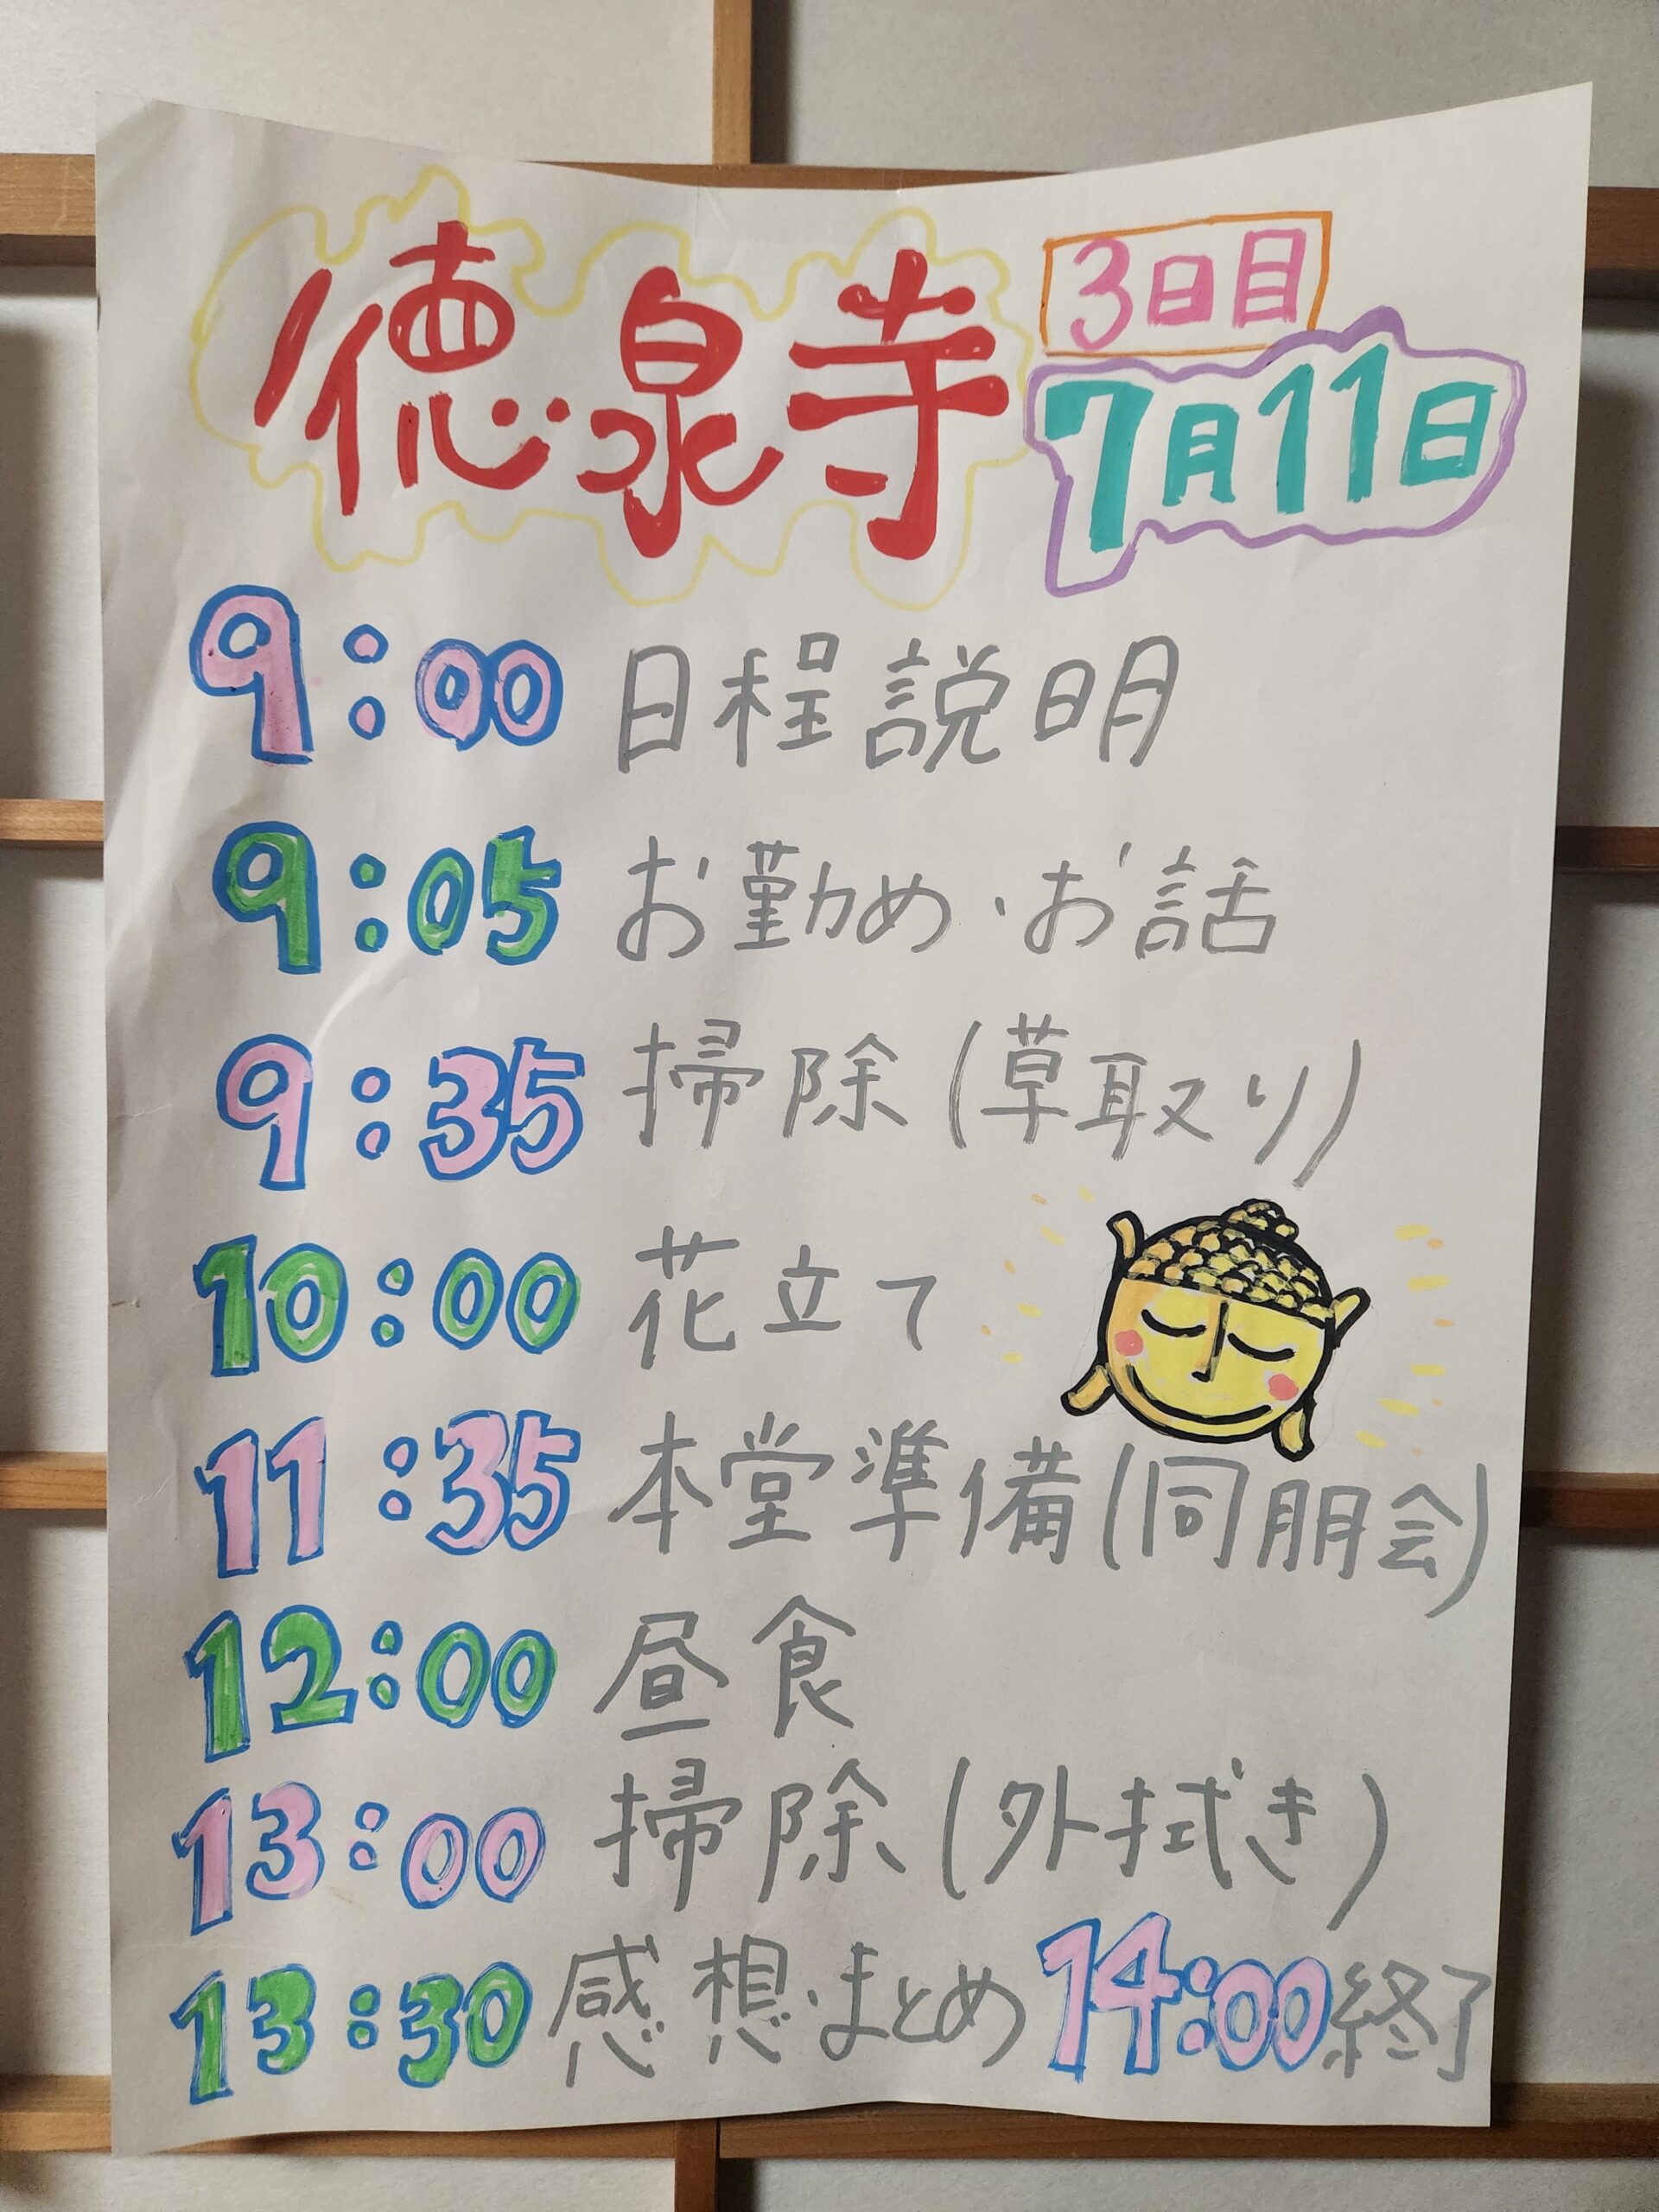 徳泉寺
3日目
7月11日
9:00 日程説明
9:05 お勤め・お話
9:35 掃除(草取り)
10:00 花立て
11:35 本堂準備(同朋会)
12:00 昼食
13:00 掃除(外拭き)
13:30 感想・まとめ 14:00 終了